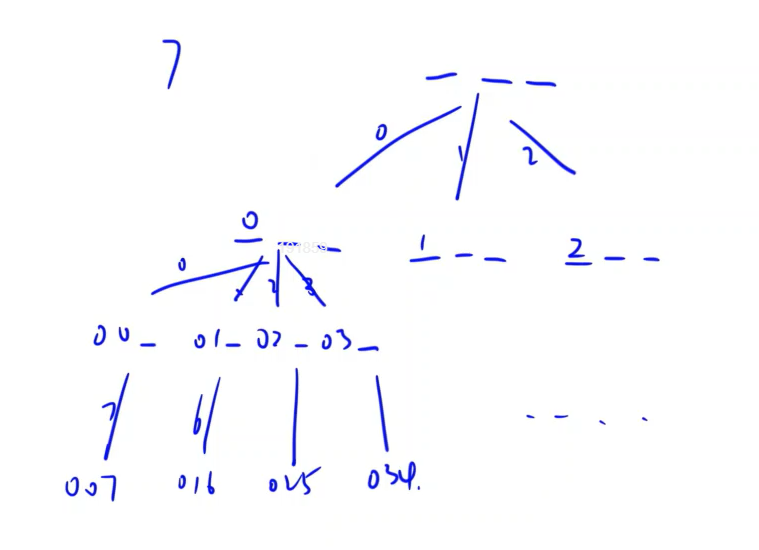 7
_ _ _
0 1 2
0 _ _ 1 _ _ 2 _ _
0 1 2 3
00_ 01_ 02_ 03_
7 6
007 016 025 034.